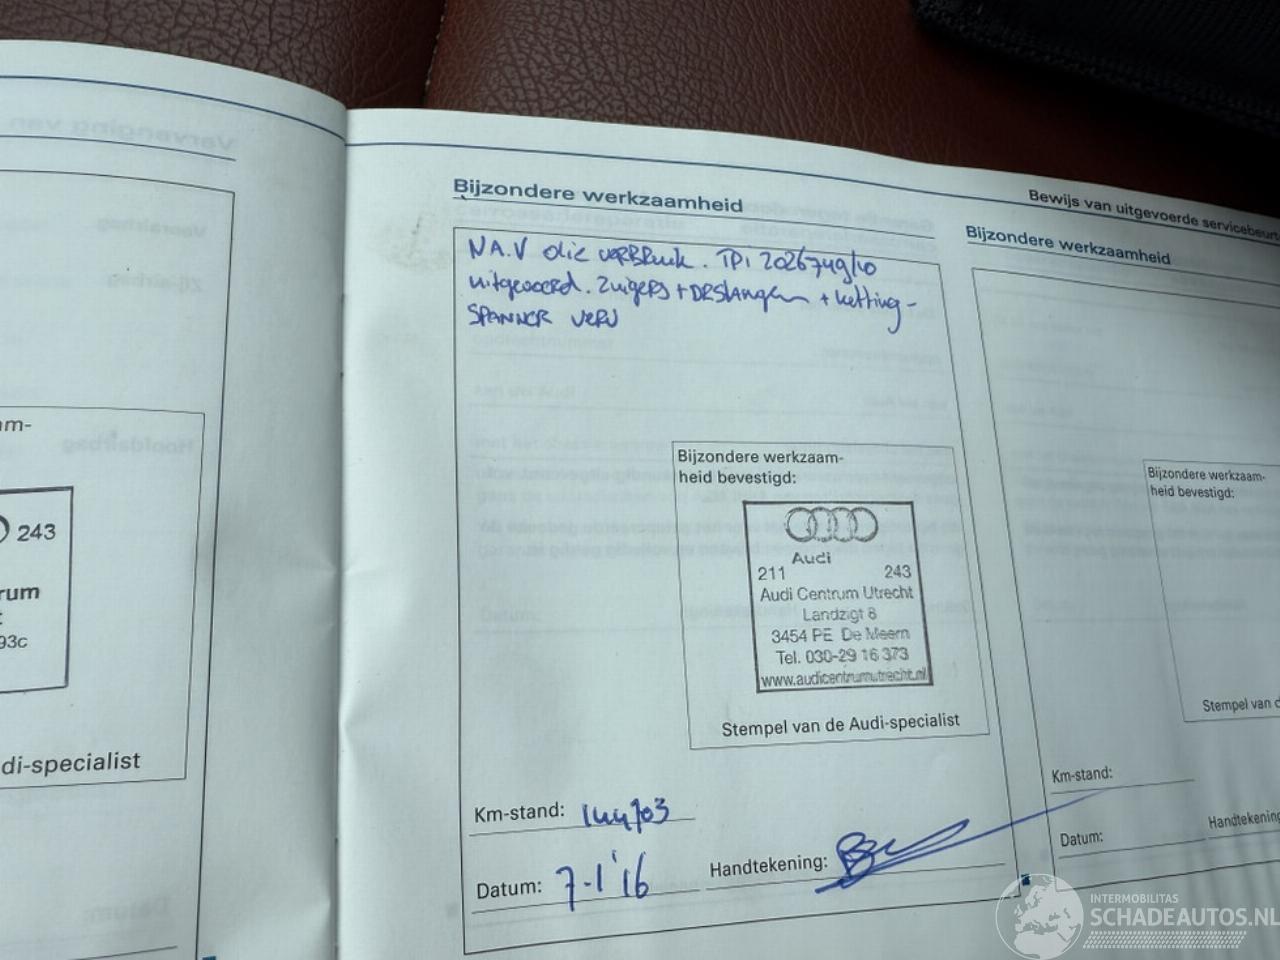 Bewijs van uitgevoerde servicebeurt
Bijzondere werkzaamheid
N.A.V olie verbruik. TPI 2026749/10
uitgevoerd. Zuigers + DRStangen + ketting-
SPANNER VERV
Bijzondere werkzaam-
heid bevestigd:
Audi
211 243
Audi Centrum Utrecht
Landzigt 8
3454 PE De Meern
Tel. 030-29 16 373
www.audicentrumutrecht.nl
Stempel van de Audi-specialist
Km-stand: 144703
Datum: 7-1'16
Handtekening:
Bijzondere werkzaamheid
Bijzondere werkzaam-
heid bevestigd:
Stempel van d
Km-stand:
Datum:
Handtekening
am-
243
rum
93c
di-specialist
INTERMOBILITAS
SCHADEAUTOS.NL